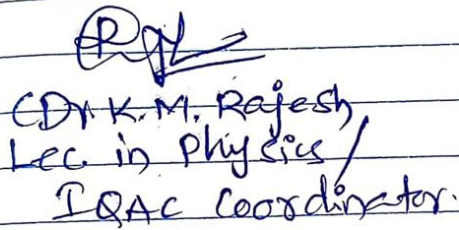 (Dr K.M. Rajesh
Lec in Physics /
IQAC Coordinator.